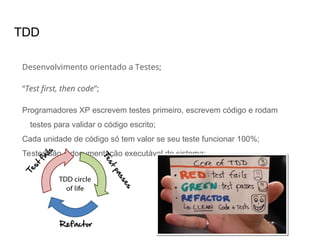 TDD
Desenvolvimento orientado a Testes;
"Test first, then code";
Programadores XP escrevem testes primeiro, escrevem código e rodam
testes para validar o código escrito;
Cada unidade de código só tem valor se seu teste funcionar 100%;
Testes são a documentação executável do sistema;
Test fails
Test passes
TDD circle
of life
Refactor
Core of TDD
RED: test fails
GREEN: test passes
REFACTOR
CLEAN Code + Tests